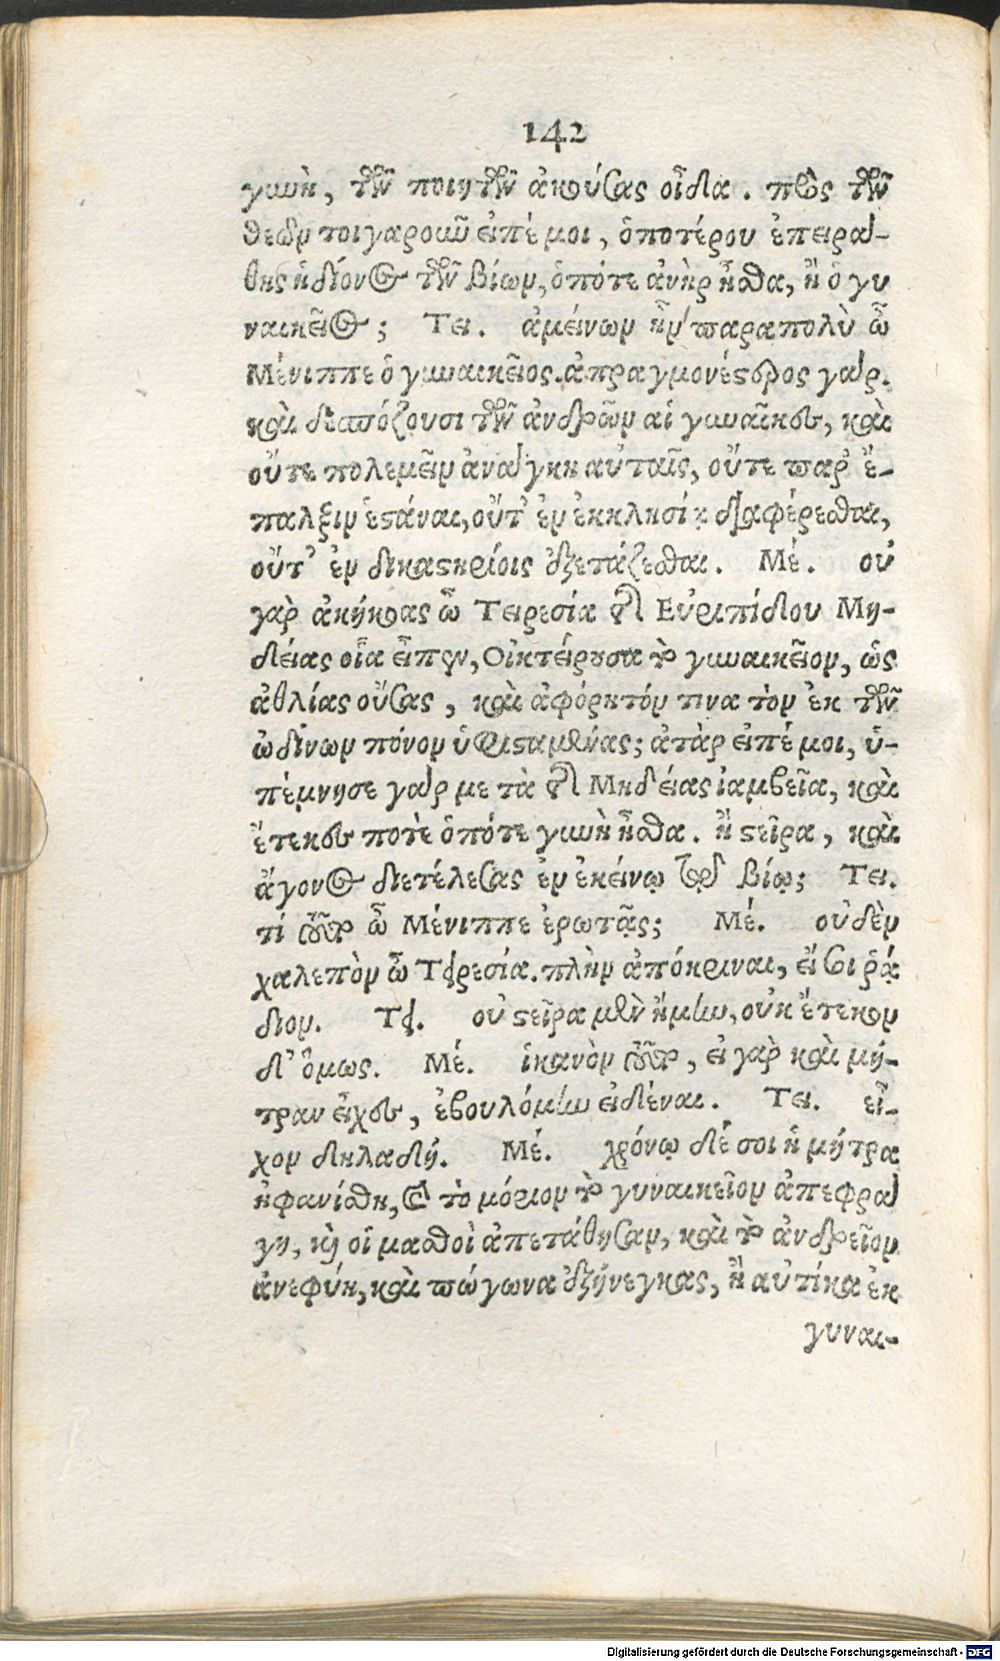 142
γυνὴ, τῶν ποιητῶν ἀκούσας οἶδα. πρὸς τῶν
θεῶν τοιγαροῦν εἰπέ μοι, ὁποτέρου ἐπειρά-
θης ἡδίονος τῶν βίων, ὁπότε ἀνὴρ ἦσθα, ἢ ὁ γυ
ναικεῖος; Τει. ἀμείνων ἦν παραπολὺ ὦ
Μένιππε ὁ γυναικεῖος. ἀπραγμονέστερος γάρ.
καὶ δεσπόζουσι τῶν ἀνδρῶν αἱ γυναῖκες, καὶ
οὔτε πολεμεῖν ἀνάγκη αὐταῖς, οὔτε παρ' ἔ-
παλξιν ἑστάναι, οὔτ' ἐν ἐκκλησίᾳ διαφέρεσθαι,
οὔτ' ἐν δικαστηρίοις ἐξετάζεσθαι. Μέ. οὐ
γὰρ ἀκήκοας ὦ Τειρεσία τῆς Εὐριπίδου Μη-
δείας οἷα εἶπεν, Οἰκτείρουσα τὸ γυναικεῖον, ὡς
ἀθλίας οὔσας, καὶ ἀφόρητόν τινα τὸν ἐκ τῶν
ὠδίνων πόνον ὑφισταμένας; ἀτὰρ εἰπέ μοι, ὑ-
πέμνησε γάρ με τὰ τῆς Μηδείας ἰαμβεῖα, καὶ
ἔτεκες ποτὲ ὁπότε γυνὴ ἦσθα. ἢ στεῖρα, καὶ
ἄγονος διετέλεσας ἐν ἐκείνῳ τῷ βίῳ; Τει.
τί τοῦτο ὦ Μένιππε ἐρωτᾷς; Μέ. οὐδὲν
χαλεπὸν ὦ Τειρεσία. πλὴν ἀπόκριναι, εἴ σοι ῥᾴ
διον. Τει. οὐ στεῖρα μὲν ἤμην, οὐκ ἔτεκον
δ' ὅμως. Μέ. ἱκανὸν τοῦτο, εἰ γὰρ καὶ μή-
τραν εἶχες, ἐβουλόμην εἰδέναι. Τει. εἶ-
χον δηλαδή. Μέ. χρόνῳ δέ σοι ἡ μήτρα
ἠφανίσθη, καὶ τὸ μόριον τὸ γυναικεῖον ἀπεφρά
γη, καὶ οἱ μασθοὶ ἀπετάθησαν, καὶ τὸ ἀνδρεῖον
ἀνεφύη, καὶ πώγωνα ἐξήνεγκας, ἢ αὐτίκα ἐκ
γυναι-
Digitalisierung gefördert durch die Deutsche Forschungsgemeinschaft - DFG